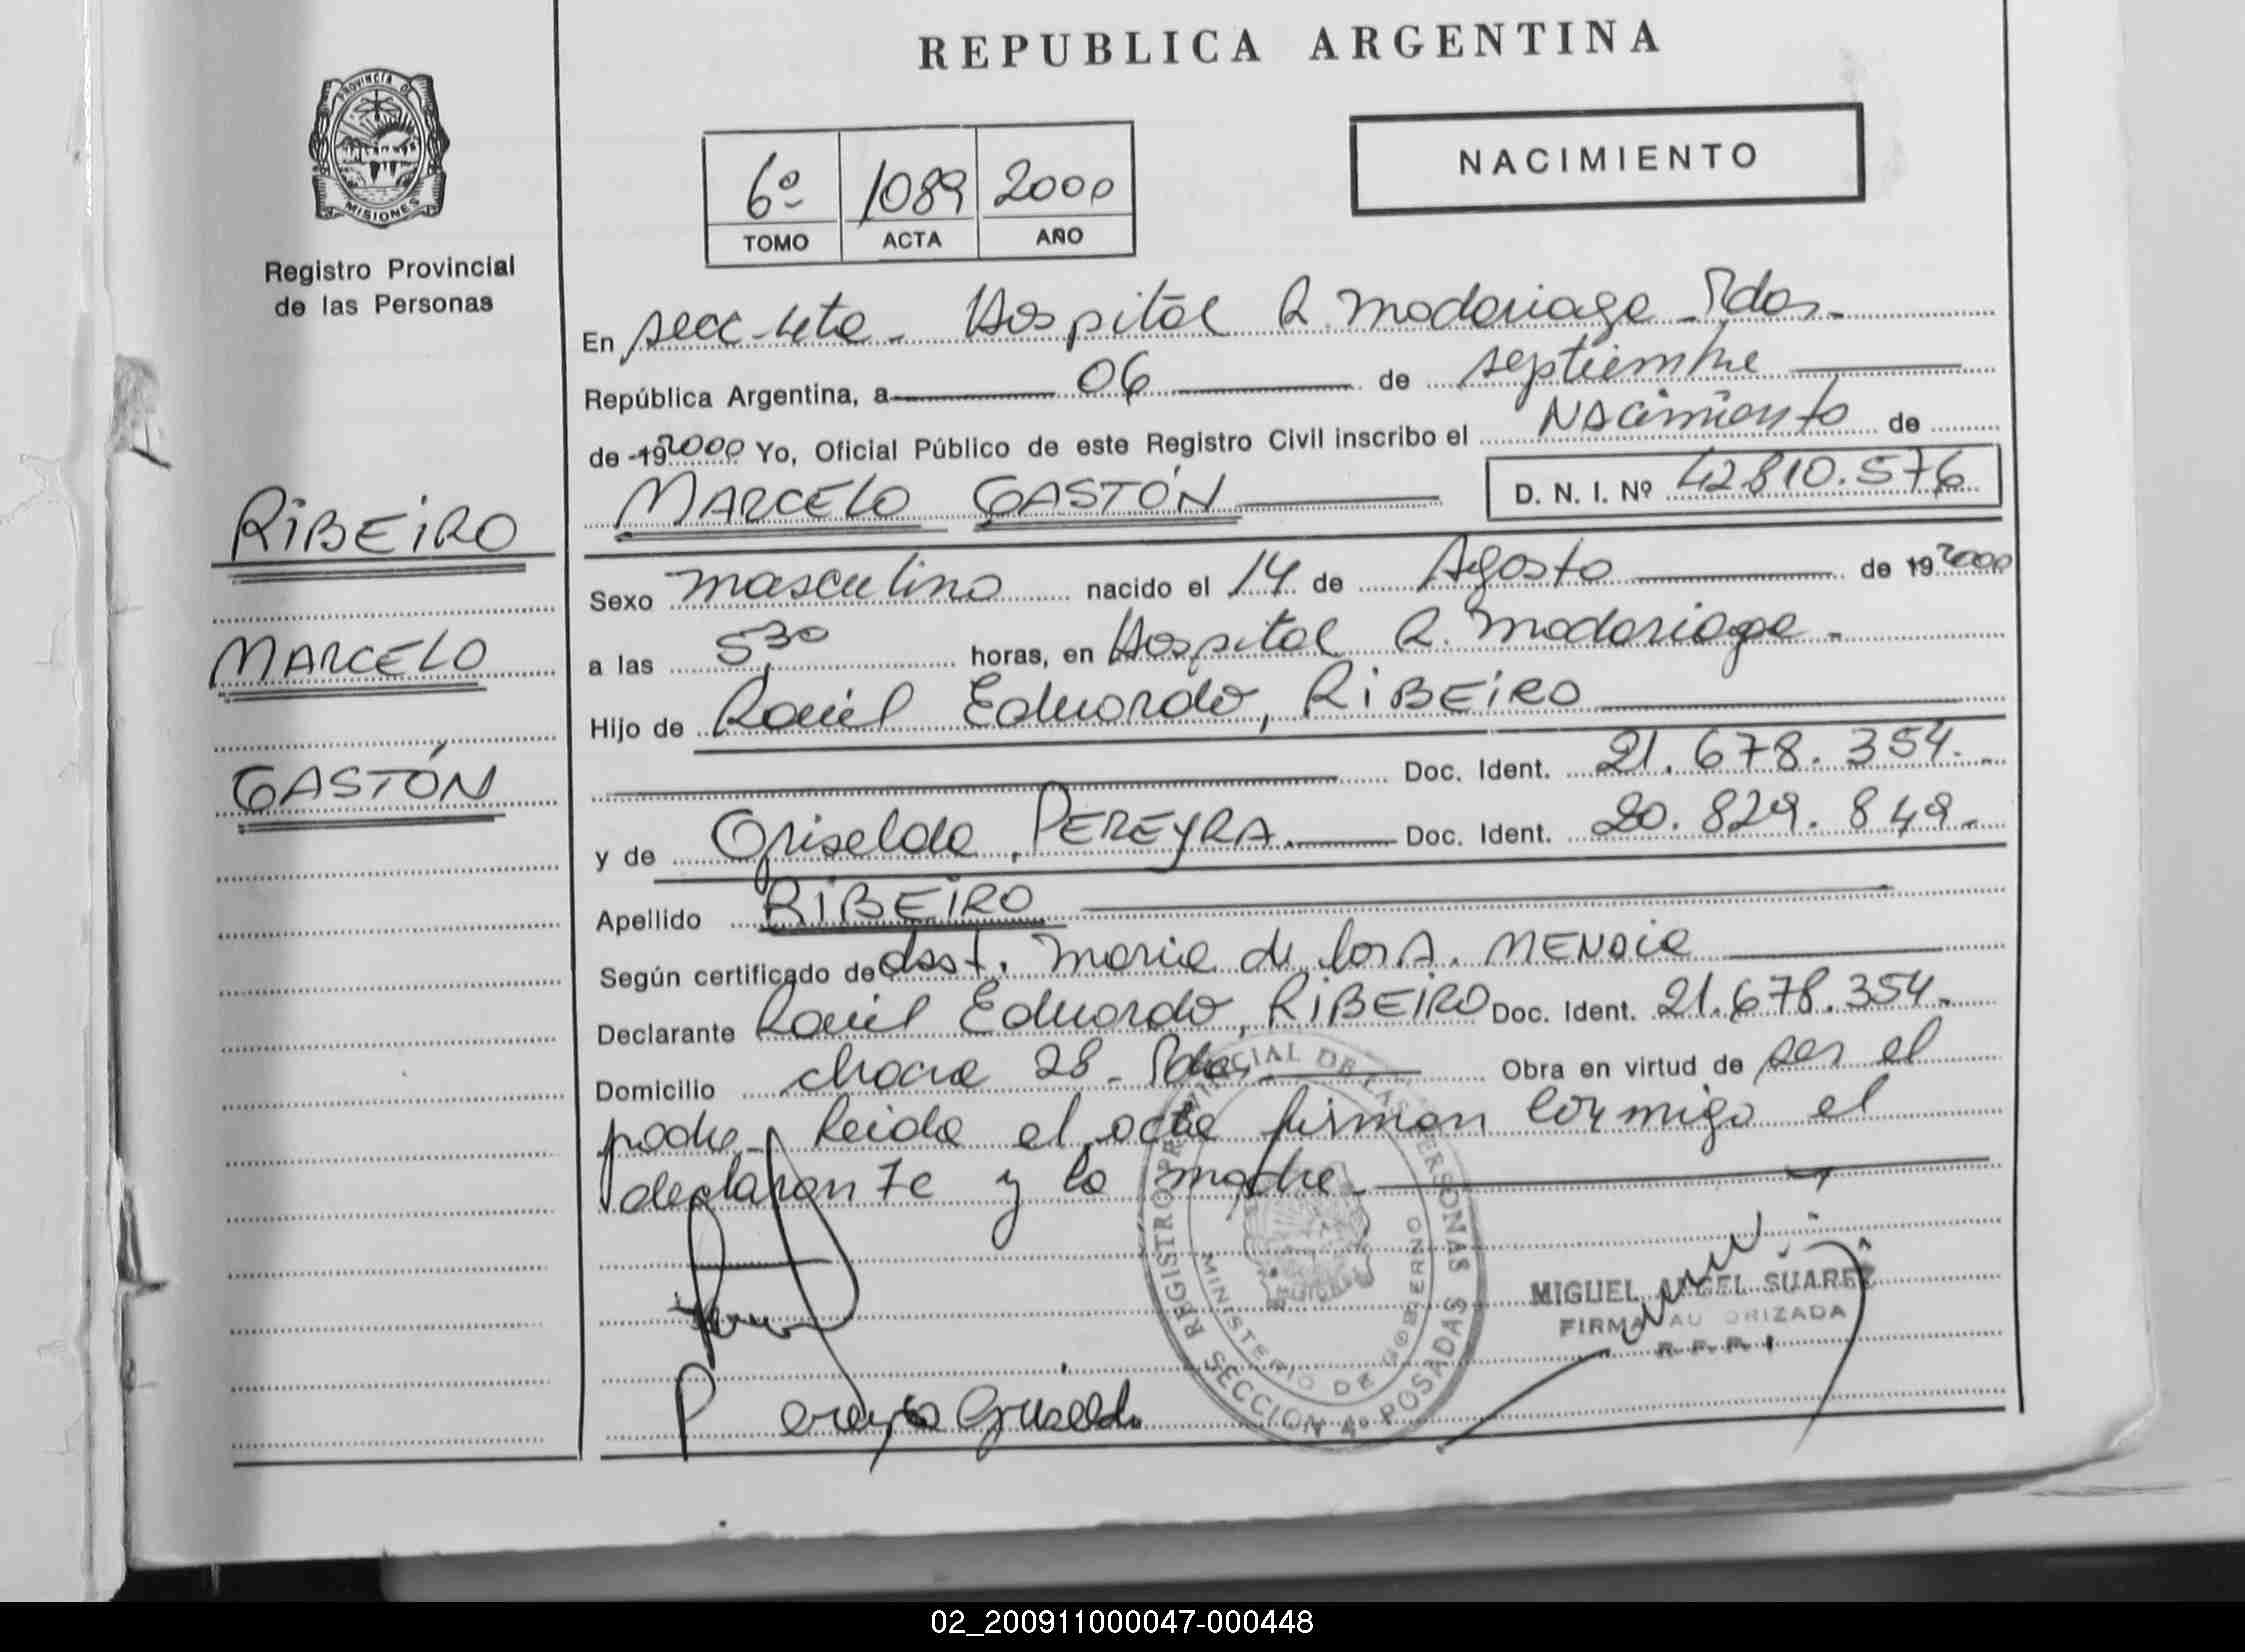 REPUBLICA ARGENTINA
PROVINCIA DE
MISIONES
Registro Provincial
de las Personas
6º 1089 2000
TOMO ACTA AÑO
NACIMIENTO
En secc. 4ta - Hospital R. Madariaga - Pdas.
República Argentina, a 06 de septiembre
de 19 2000 Yo, Oficial Público de este Registro Civil inscribo el Nacimiento de
MARCELO GASTÓN D. N. I. Nº 42810.576
RIBEIRO
MARCELO
GASTÓN
Sexo masculino nacido el 14 de Agosto de 19 2000
a las 5,30 horas, en Hospital R. Madariaga -
Hijo de Raúl Eduardo, RIBEIRO
Doc. Ident. 21.678.354.-
y de Griselda, PEREYRA Doc. Ident. 20.829.849.-
Apellido RIBEIRO
Según certificado de obst. Maria de los A.
Declarante Raúl Eduardo, RIBEIRO Doc. Ident. 21.678.354.-
Domicilio chacra 28 - Pdas. Obra en virtud de ser el
padre. Leida el acta firman conmigo el
declarante y la madre.
Pereyra Griselda
REGISTRO PROVINCIAL DE LAS PERSONAS
MINISTERIO DE GOBIERNO
SECCION 4º POSADAS
MIGUEL ANGEL SUAREZ
FIRMA AUTORIZADA
R.P.P.
02_200911000047-000448